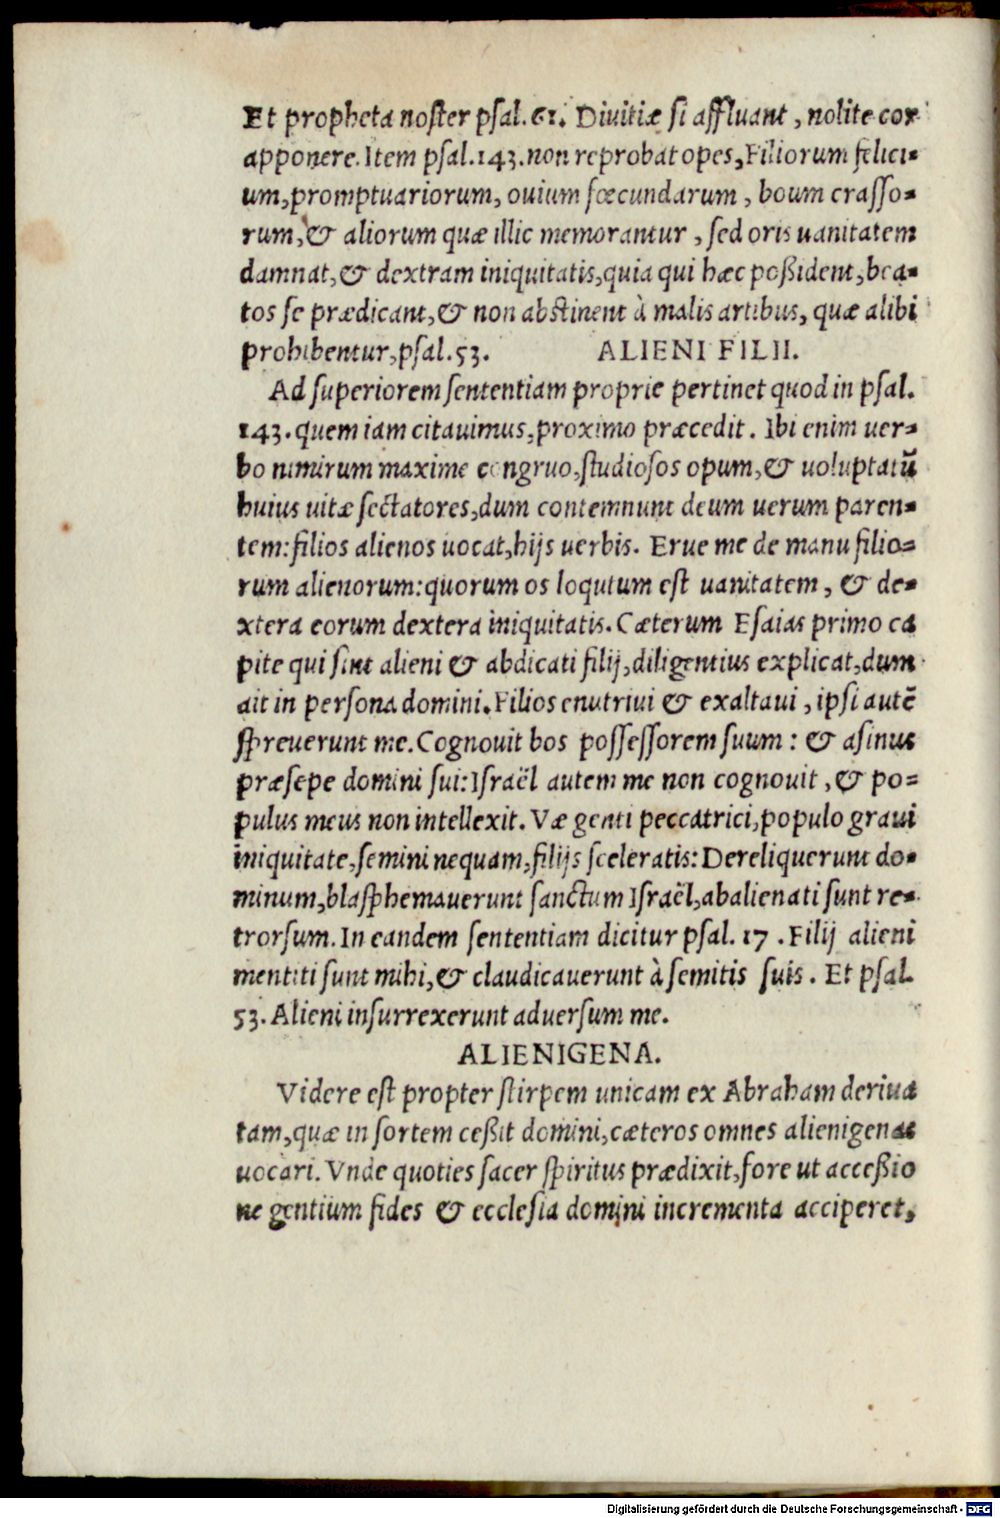 Et propheta noster psal. 61. Divitiæ si affluant, nolite cor
apponere. Item psal. 143. non reprobat opes, Filiorum felici-
um, promptuariorum, ovium fœcundarum, boum crasso-
rum, & aliorum quæ illic memorantur, sed oris vanitatem
damnat, & dextram iniquitatis, quia qui hæc poßident, bea-
tos se prædicant, & non abstinent à malis artibus, quæ alibi
prohibentur, psal. 53. ALIENI FILII.
Ad superiorem sententiam proprie pertinet quod in psal.
143. quem iam citavimus, proximo præcedit. Ibi enim ver-
bo nimirum maxime congruo, studiosos opum, & voluptatū
huius vitæ sectatores, dum contemnunt deum verum paren-
tem: filios alienos vocat, hijs verbis. Erue me de manu filio-
rum alienorum: quorum os loqutum est vanitatem, & de-
xtera eorum dextera iniquitatis. Cæterum Esaias primo ca
pite qui sint alieni & abdicati filij, diligentius explicat, dum
ait in persona domini. Filios enutrivi & exaltavi, ipsi autē
spreverunt me. Cognovit bos possessorem suum: & asinus
præsepe domini sui: Israël autem me non cognovit, & po-
pulus meus non intellexit. Væ genti peccatrici, populo gravi
iniquitate, semini nequam, filijs sceleratis: Dereliquerunt do-
minum, blasphemaverunt sanctum Israël, abalienati sunt re-
trorsum. In eandem sententiam dicitur psal. 17. Filij alieni
mentiti sunt mihi, & claudicaverunt à semitis suis. Et psal.
53. Alieni insurrexerunt adversum me.
ALIENIGENA.
Videre est propter stirpem unicam ex Abraham deriva
tam, quæ in sortem ceßit domini, cæteros omnes alienigenas
vocari. Vnde quoties sacer spiritus prædixit, fore ut acceßio
ne gentium fides & ecclesia domini incrementa acciperet,
Digitalisierung gefördert durch die Deutsche Forschungsgemeinschaft - DFG